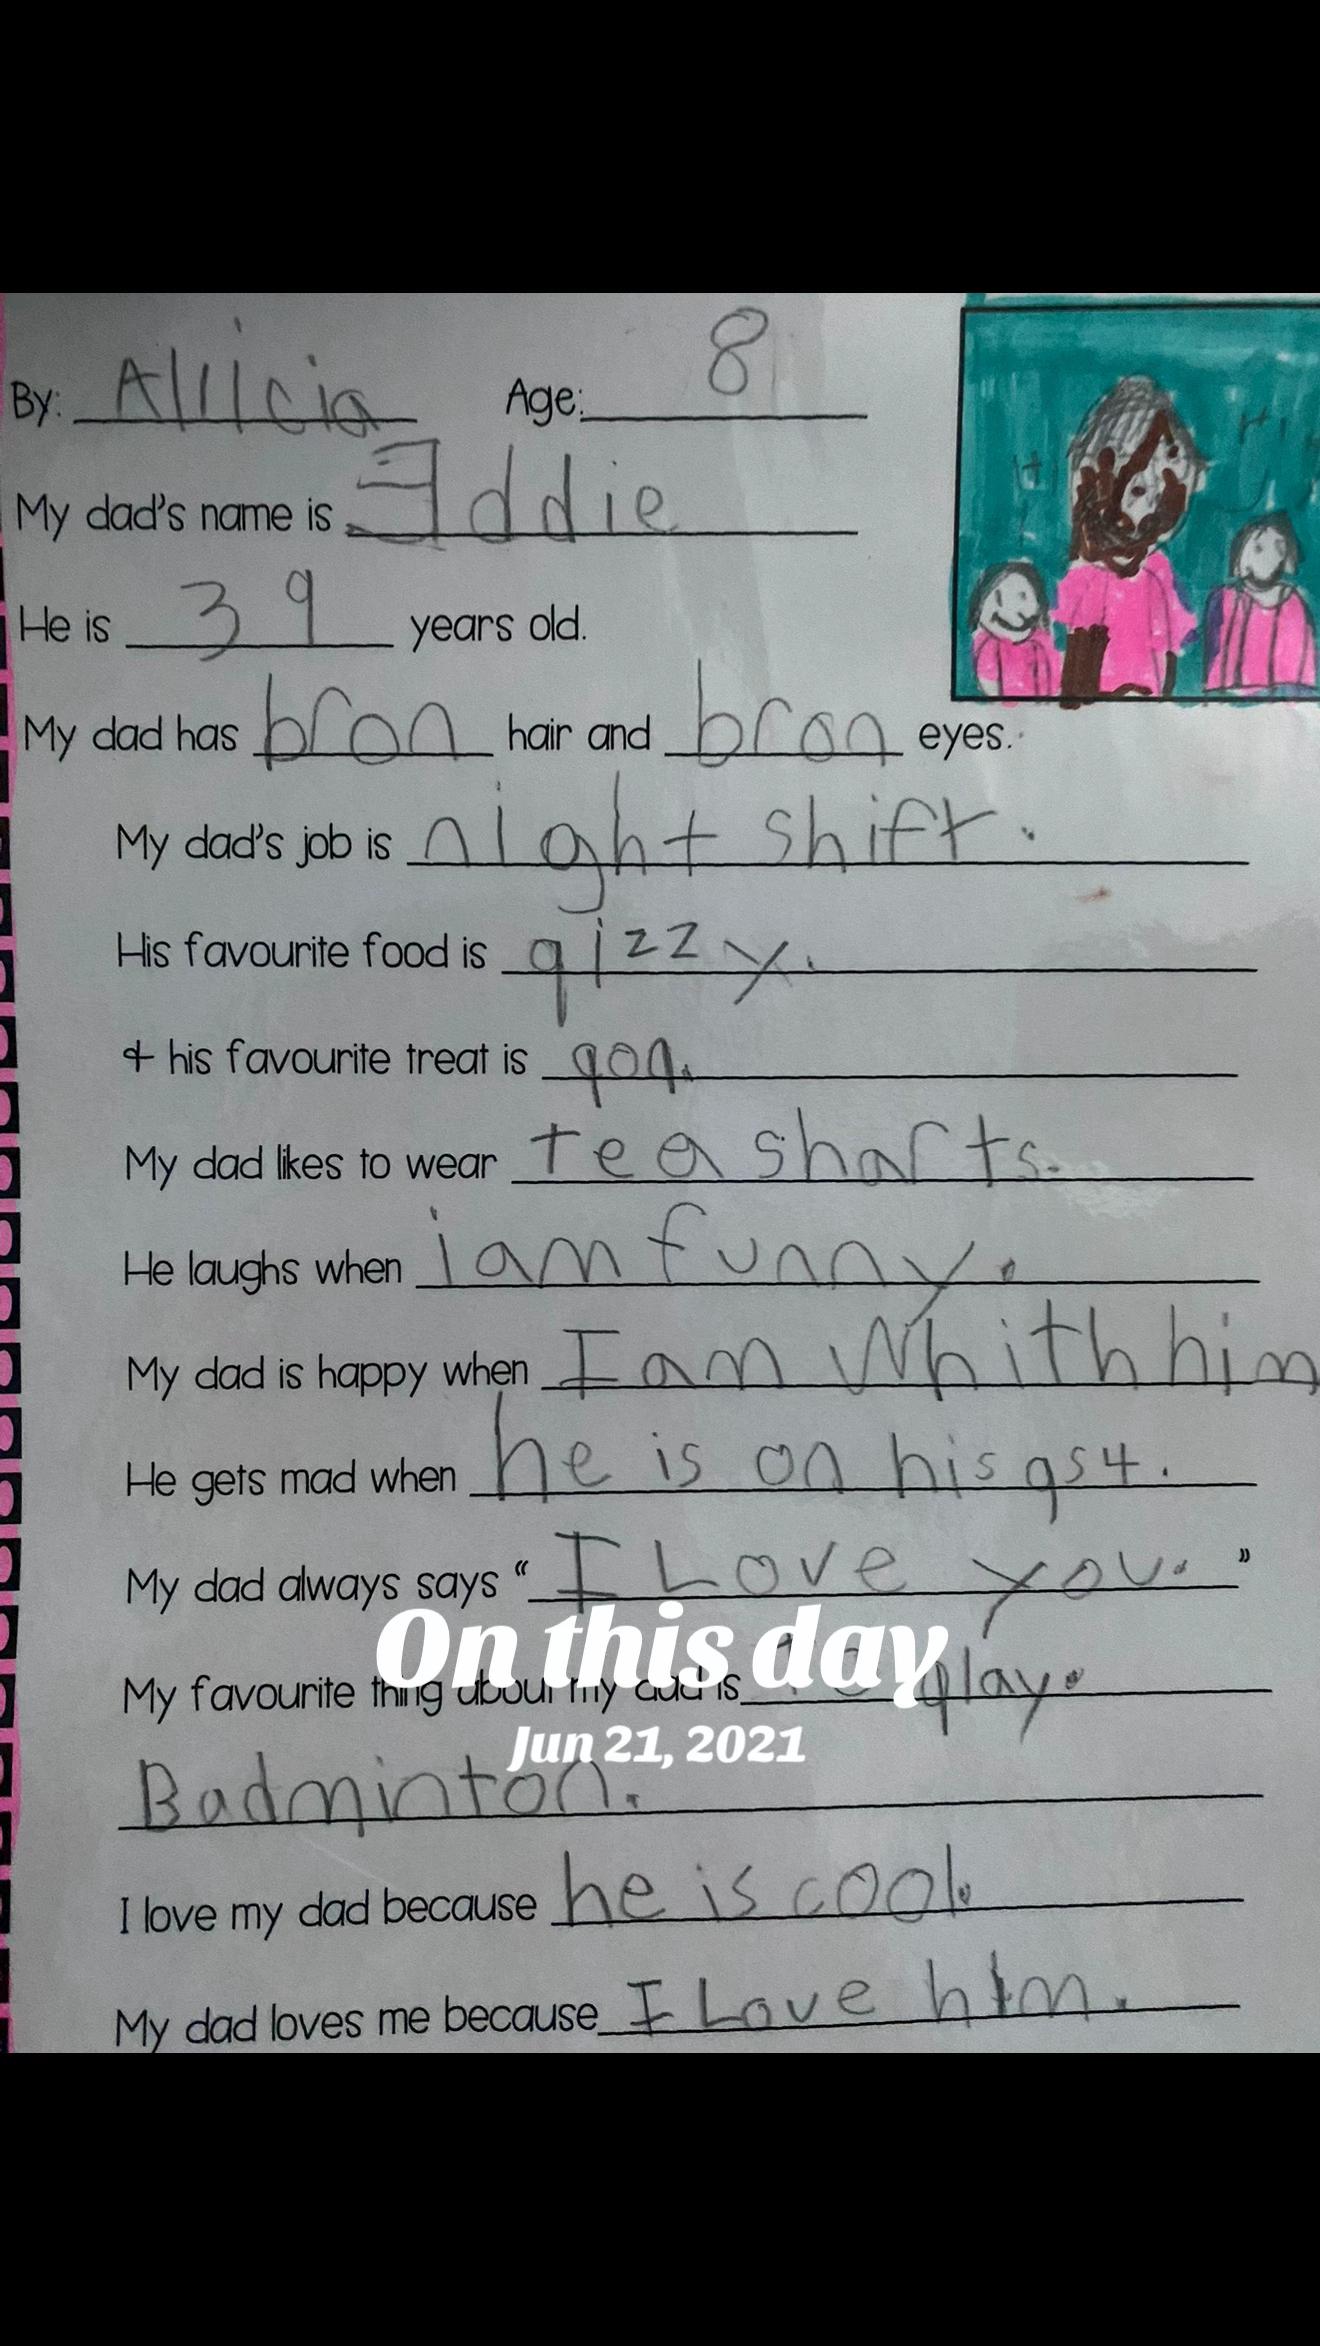 By: Allicia Age: 8
My dad's name is Eddie
He is 39 years old.
My dad has bron hair and bron eyes.
My dad's job is night shift.
His favourite food is qizzy.
& his favourite treat is qoq.
My dad likes to wear tea sharts.
He laughs when i am funny.
My dad is happy when I am Whith him
He gets mad when he is on his qs4.
My dad always says "I Love you."
On this day
My favourite thing about my dad is to qlay.
Jun 21, 2021
Badminton.
I love my dad because he is cool.
My dad loves me because I Love him.